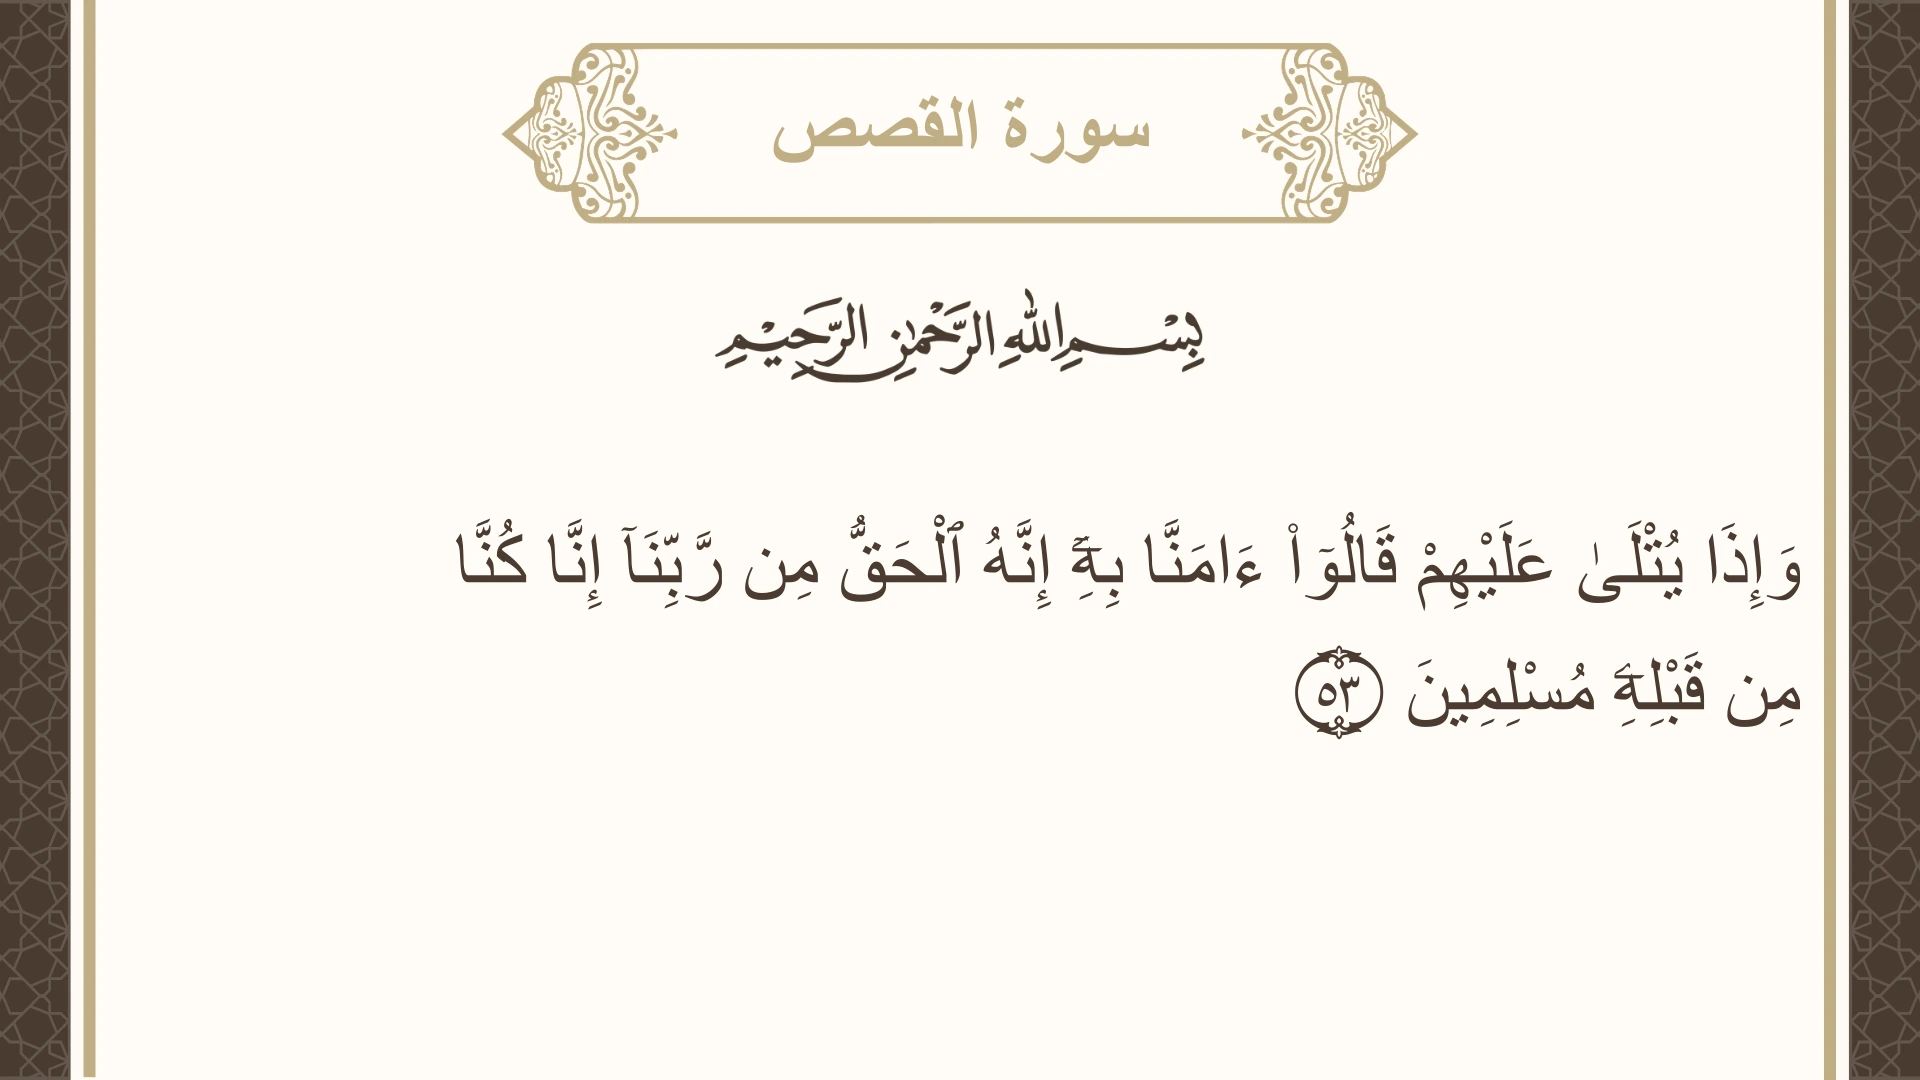 سورة القصص
بِسْمِ اللهِ الرَّحْمٰنِ الرَّحِيْمِ
وَإِذَا يُتْلَىٰ عَلَيْهِمْ قَالُوٓا۟ ءَامَنَّا بِهِۦٓ إِنَّهُ ٱلْحَقُّ مِن رَّبِّنَآ إِنَّا كُنَّا
مِن قَبْلِهِۦ مُسْلِمِينَ ٥٣